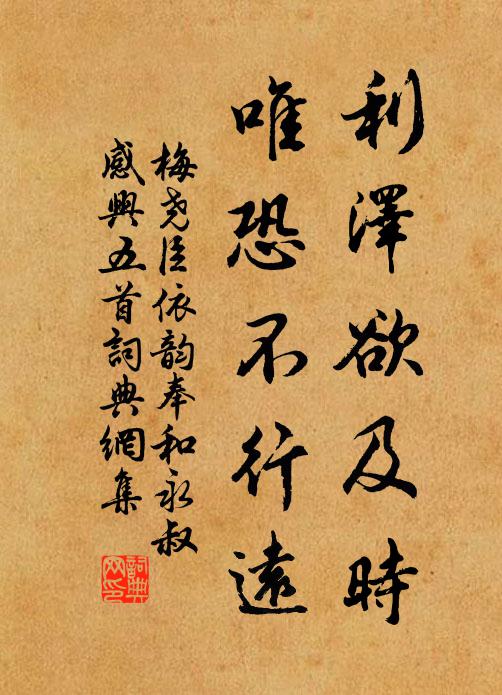 利澤欲及時
唯恐不行遠
梅尧臣依韵奉和永叔
感興五首詞典網集
詞典
网印